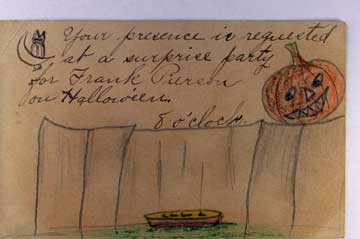 Your presence is requested
at a surprise party
for Frank Pierson
on Hallowe'en.
8 o'clock